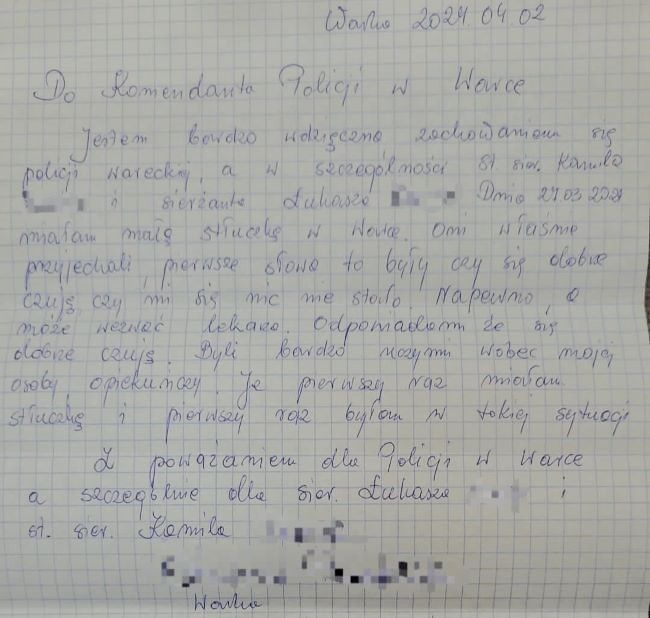 Warka 2024.04.02
Do Komendanta Policji w Warce
Jestem bardzo wdzięczna zachowaniem się
policji wareckiej, a w szczególności st. sier. Kamila
i sierżanta Łukasza Dnia 27.03 2024
miałam małą stłuczkę w Warce. Oni właśnie
przyjechali, pierwsze słowa to były czy się dobrze
czuję czy mi się nic nie stało. Napewno, a
może wezwać lekarza. Odpowiadam że się
dobrze czuję. Byli bardzo wobec mojej
osoby opiekuńczy. Ja pierwszy raz miałam
stłuczkę i pierwszy raz byłam w takiej sytuacji
Z poważaniem dla Policji w Warce
a szczególnie dla sier. Łukasza i
st. sier. Kamila
Warka